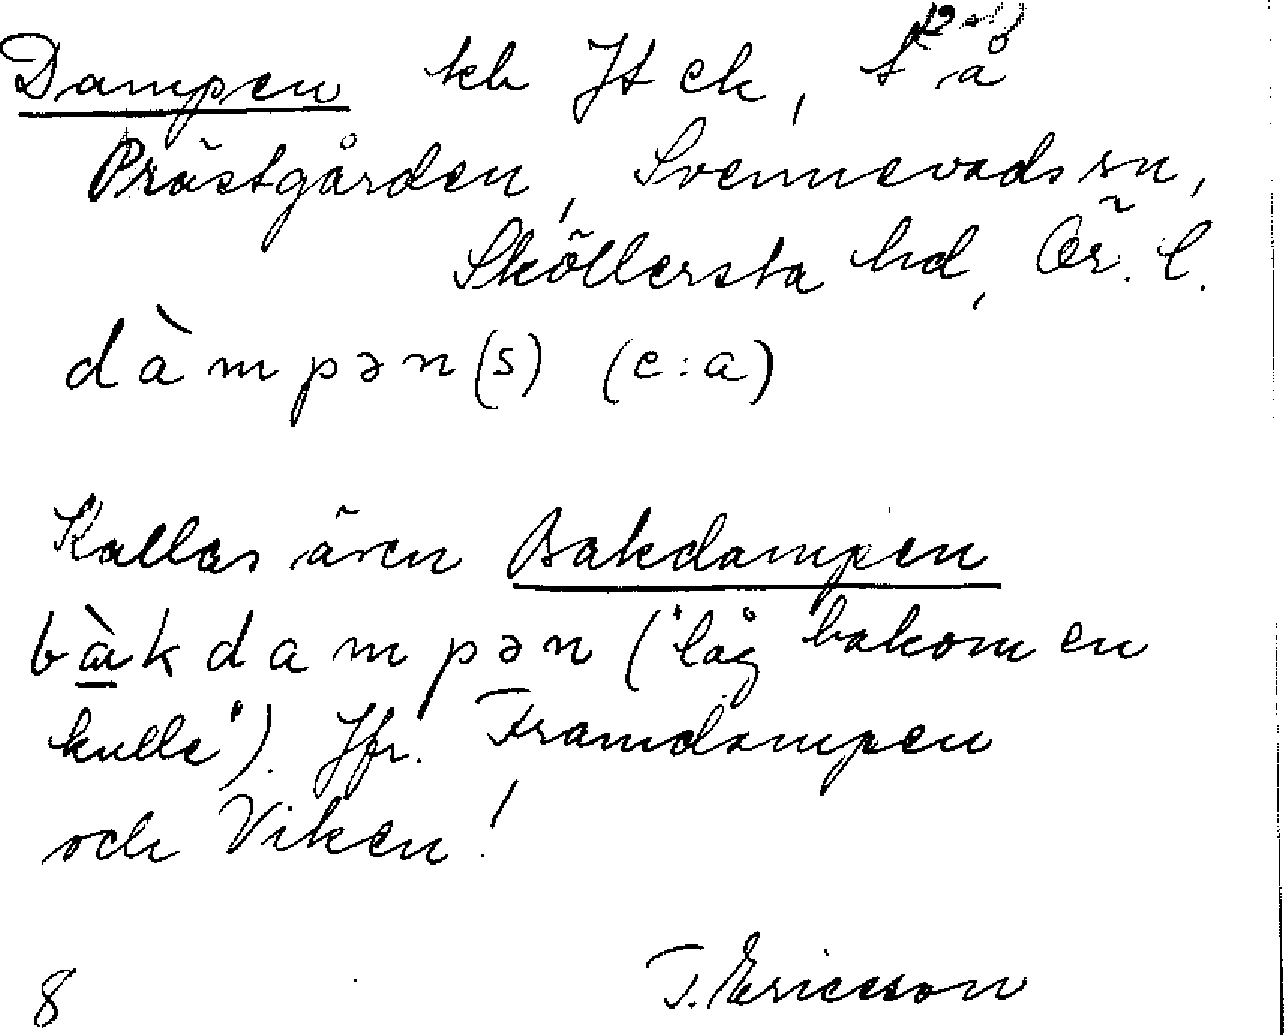 Dampen kh Jt ck, t å
Prästgården, Svennevads sn,
Sköllersta hd, Ör. l.
dàmpən(s) (e:a)
Kallas även Bakdampen
bàkdampən ('låg bakom en
kulle'). Jfr. Framdampen
och Viken!
8 T. Ericsson